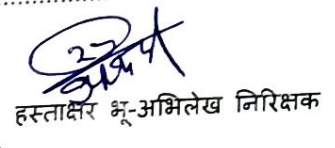 हस्ताक्षर भू-अभिलेख निरिक्षक